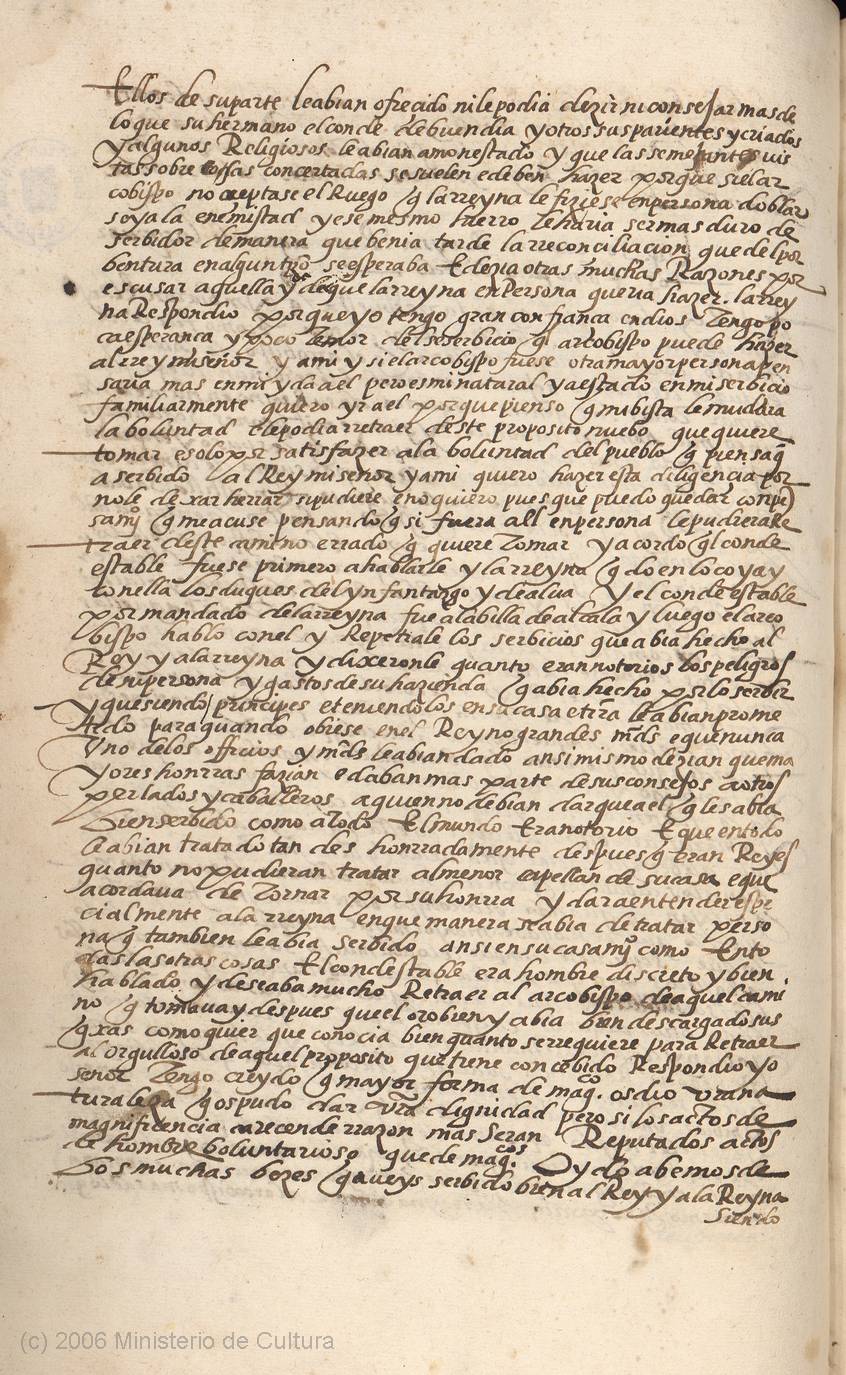 Ellos de su parte le abian ofrecido ni le podia dezir ni consejar mas de
lo que su hermano el conde de buendia y otros sus parientes y criados
y algunos Religiosos le abian amonestado y que las semejantes vis
tas sobre cossas concertadas se suelen e deben hazer porque si el ar
cobispo no aceptase el Ruego q la rreyna le fiziese en persona doblar
se ya la enemistad y ese mesmo hierro le haria ser mas duro de
serbidor de manera que benia tarde la rreconciliacion que del por
bentura en algun tpo se esperaba E dezia otras muchas Razones por
escusar aquella yda que la rreyna en Persona queria hazer. la rrey
na Respondio porque yo tengo gran confianca en dios Tengo po
ca esperanca y poco Temor del serbicio q arcobispo puede hazer
al rrey mi señor y a mi y si el arcobispo fuese otra mayor persona pen
saria mas en mi yda a el pero es mi natural y a estado en mi serbicio
familiarmente quiero yr a el porque pienso q mi bista le muddra
la boluntad e le podia rretraer deste proposito nuebo que quiere
tomar e solo por satisfazer a la boluntad del pueblo q piensa q
a serbido al Rey mi señor y a mi quiero hazer esta diligencia por
no le dexar herrar si pudiere e no quiero pues que puedo quedar con pe
samjº q me acuse pensando q si fuera all en persona le pudiera Re
traer deste camino errado q quiere Tomar y acordo ql conde
estable fuese primero a hablalle y la rreyna q do en locoya y
con ella los duques del ynfantazgo y de alua y el condeestable
por mandado de la rreyna fue a la billa de alcala y luego el arco
bispo hablo con el y Repetiale los serbicios que abia hecho al
Rey y a la rreyna y dixeronle quanto eran notorios los peligros
de su persona y gastos de su hazienda q abia hecho por lo serbir
y que siendo principes e teniendolos en su casa e tirra le abian prome
tido para quando obiese en el Reyno grandes mds e que nunca
Uno de los officios y mds le abian dado ansi mismo dezian que ma
yores honrras fazian e daban mas parte de sus consejos a otros
perlados y caballeros a quien no debian dar que a el q les abia
bien serbido como a todo El mundo Era notorio E que en todo
le abian tratado tan deshonrradamente despues q eran Reyes
quanto no pudieran tratar al menor capellan de su casa e que
acordaua de Tornar por su honrra y dar a entender espe
cialmente a la rreyna en que manera se abia de tratar perso
na q tambien le abia serbido ansi en su casamjº como En to
das las otras cosas El condestable era hombre discreto y bien
hablado y deseaba mucho Retraer al arcobispo de aquel cami
no q tomaua y despues que el oyo bien y abia bien descargado sus
qxas como quier que conocia bien quanto se rrequiere para Retraer
al orgulloso de aquel proposito que tiene concebido Respondio yo
señor Tengo creydo q mayor forma de magco. os dio vrana
turaleza q os pudo dar vra dignidad pero si los actos de
magnificencia carecen de rrazon mas seran Reputados actos
de hombre boluntarioso que de magcos. Oydo abemos de
bos muchas bezes q aueys serbido bien al Rey y a la Reyna
Siendo
(c) 2006 Ministerio de Cultura